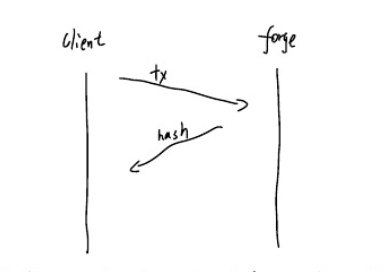 client
forge
tx
hash